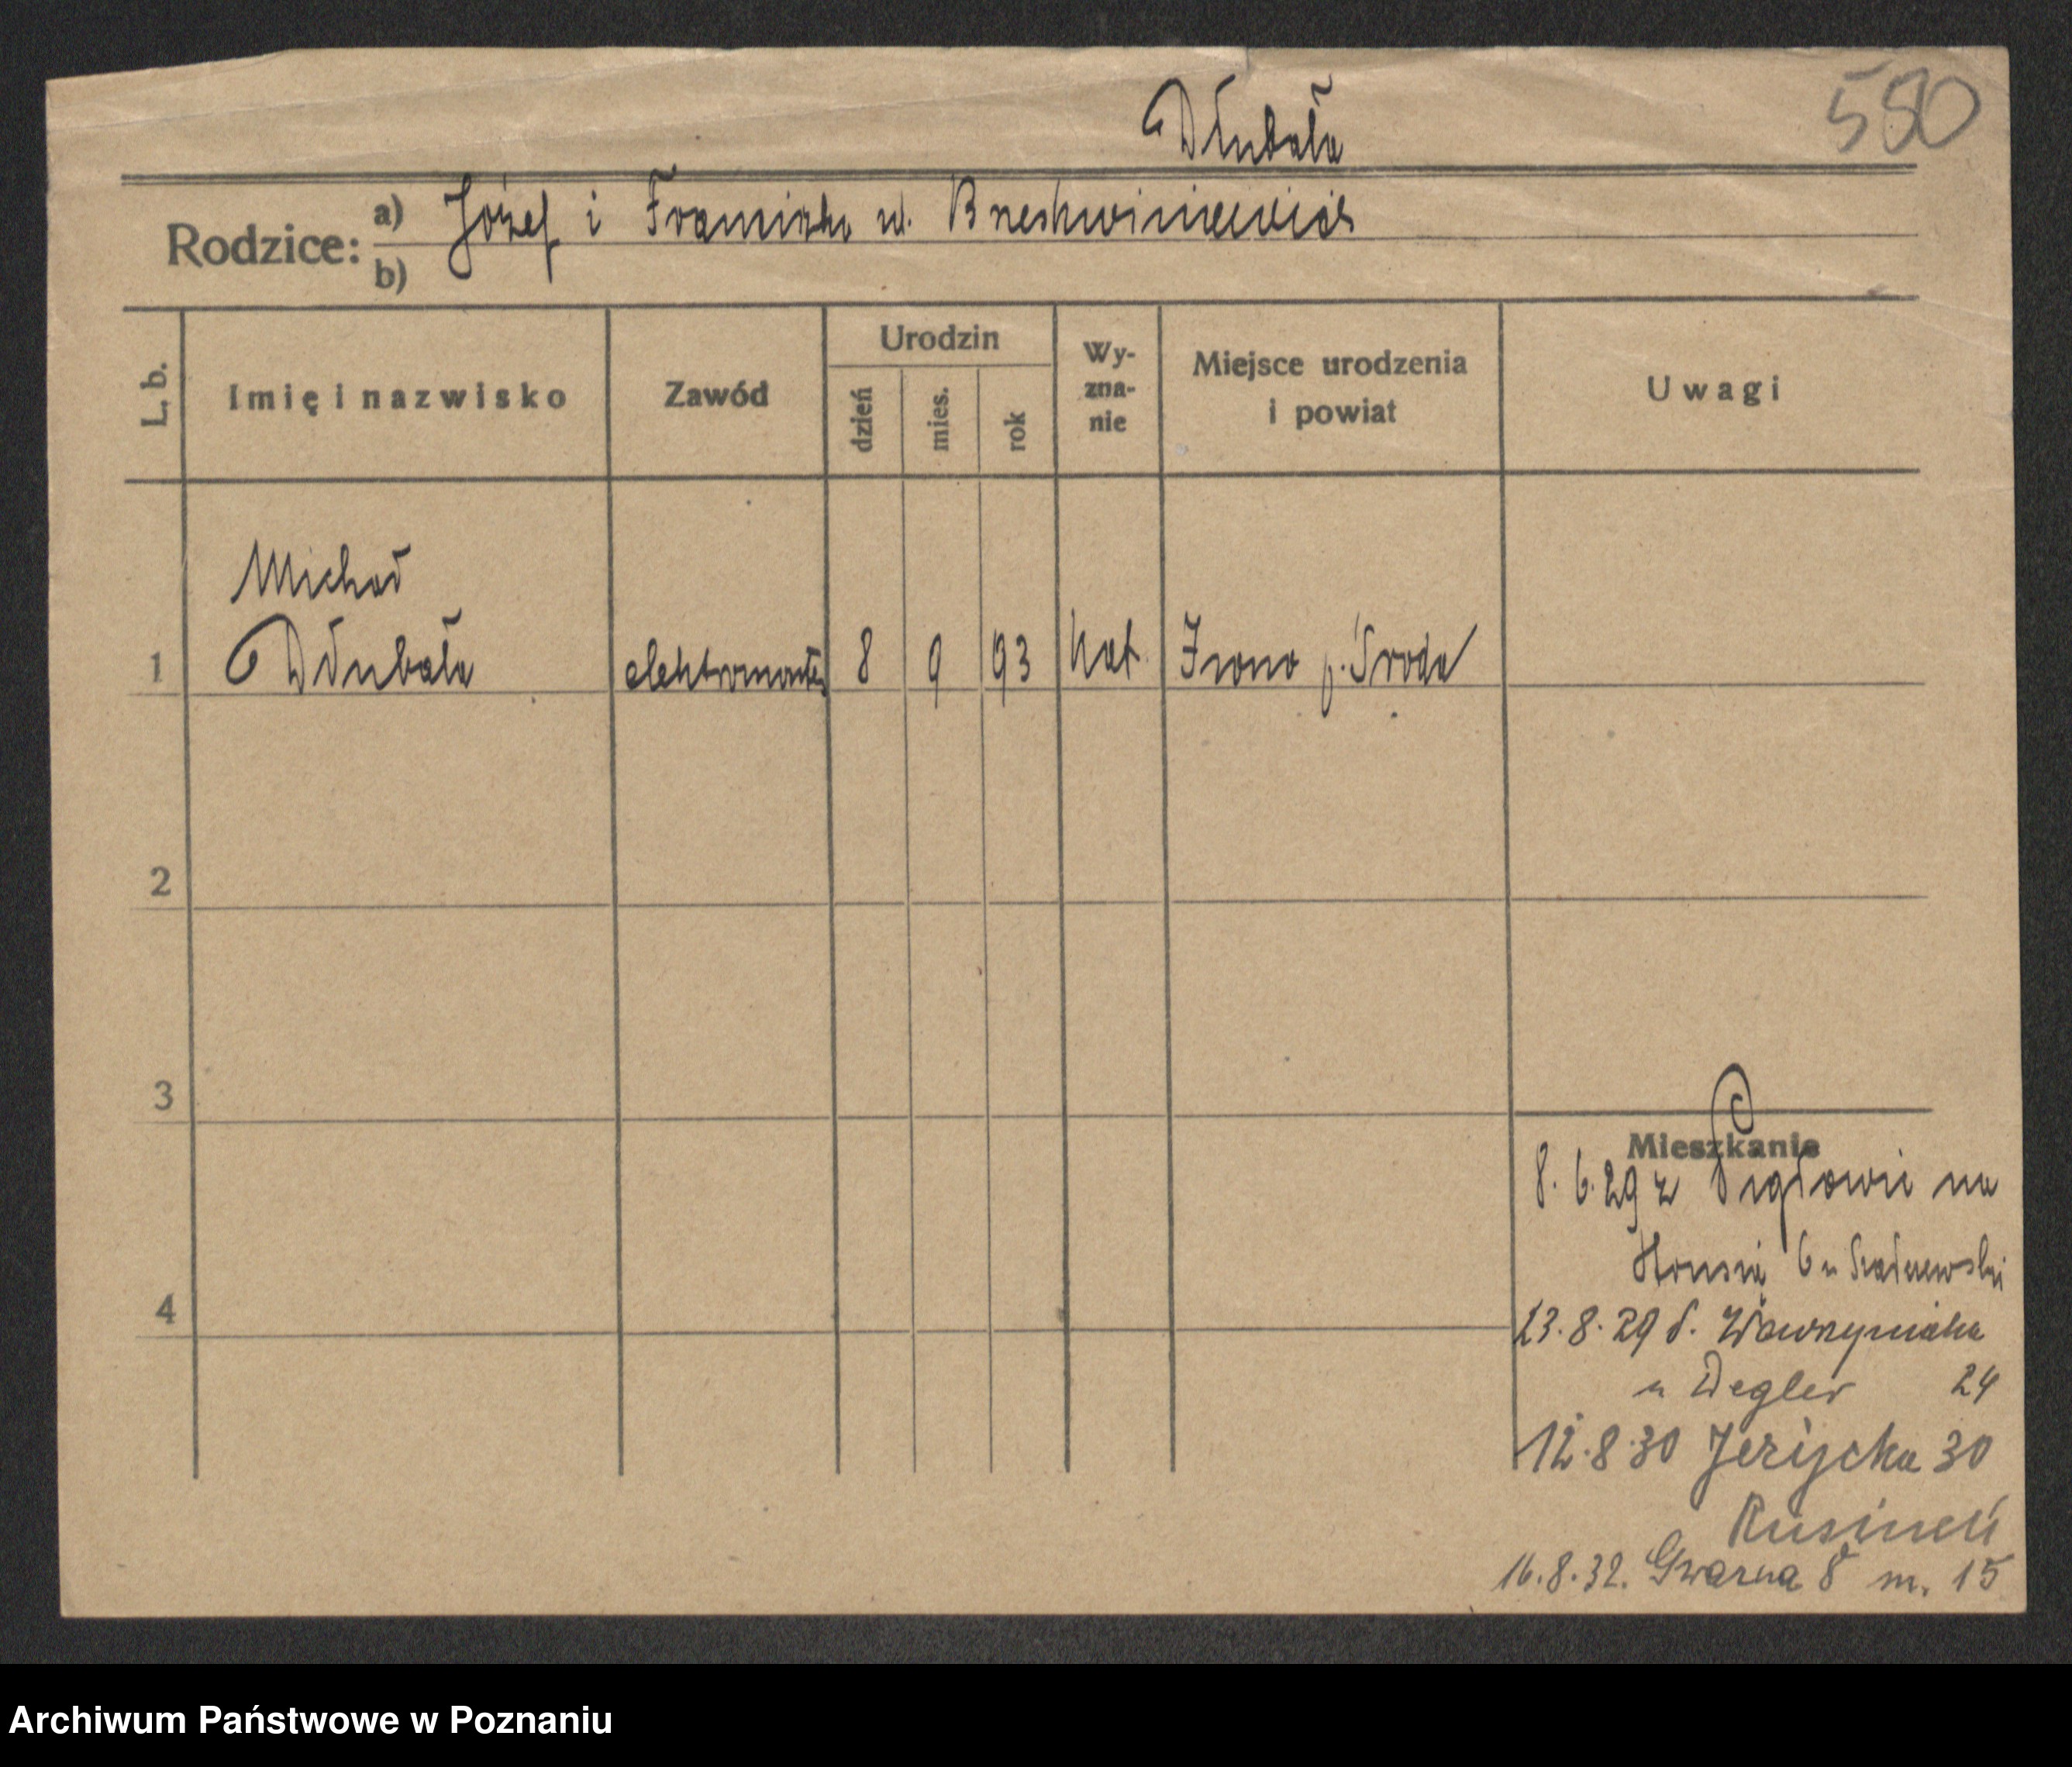 Dłubała
580
Rodzice: a) Józef i Franciszka ur.
b)
L. b.
Imię i nazwisko
Zawód
Urodzin
dzień
mies.
rok
Wy-
zna-
nie
Miejsce urodzenia
i powiat
Uwagi
Michał
1 Dłubała elektromonter 8 9 93 kat. p. Środa
2
3
4
Mieszkanie
8. 6. 29 z na
6 u
13.8.29 Wawrzyniaka
u Wegler 24
12.8.30 Jeżycka 30
Rusinek
16.8.32. Gwarna 8 m. 15
Archiwum Państwowe w Poznaniu